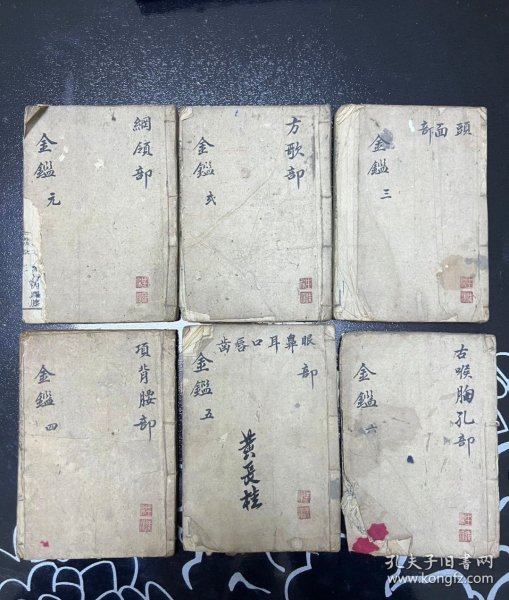 綱領部
金鑑 元
方歌部
金鑑 弍
頭面部
金鑑 三
項背腰部
金鑑 四
眼鼻耳口唇齒部
金鑑 五
黄長桂
舌喉胸孔部
金鑑 六
孔夫子旧书网
www.kongfz.com